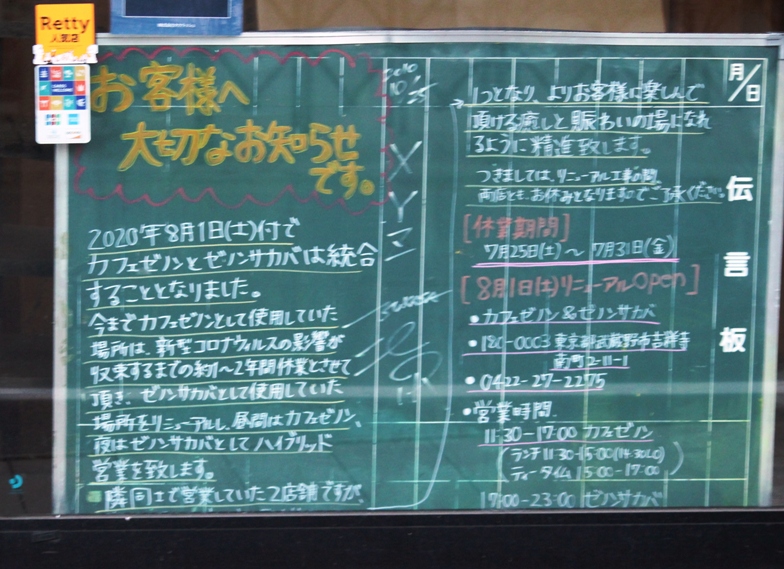 Retty
人気店
お客様へ
大切なお知らせ
です。
2020年8月1日(土)付で
カフェゼノンとゼノンサカバは統合
することとなりました。
今までカフェゼノンとして使用していた
場所は、新型コロナウィルスの影響が
収束するまでの約1〜2年間休業とさせて
頂き、ゼノンサカバとして使用していた
場所をリニューアルし、昼間はカフェゼノン、
夜はゼノンサカバとしてハイブリッド
営業を致します。
隣同士で営業していた2店舗ですが、
X
Y
マ
1つとなり、よりお客様に楽しんで
頂ける癒しと賑わいの場になれ
るように精進致します。
つきましては、リニューアル工事の間、
両店とも、お休みとなりますのでご了承ください。
[休業期間]
7月25日(土)〜7月31日(金)
[8月1日(土)リニューアルOpen]
・カフェゼノン&ゼノンサカバ
・180-0003 東京都武蔵野市吉祥寺
南町2-11-1
・0422-27-2275
・営業時間
11:30-17:00 カフェゼノン
(ランチ11:30-15:00(14:30LO)
ティータイム15:00-17:00)
17:00-23:00 ゼノンサカバ
月/日
伝言板